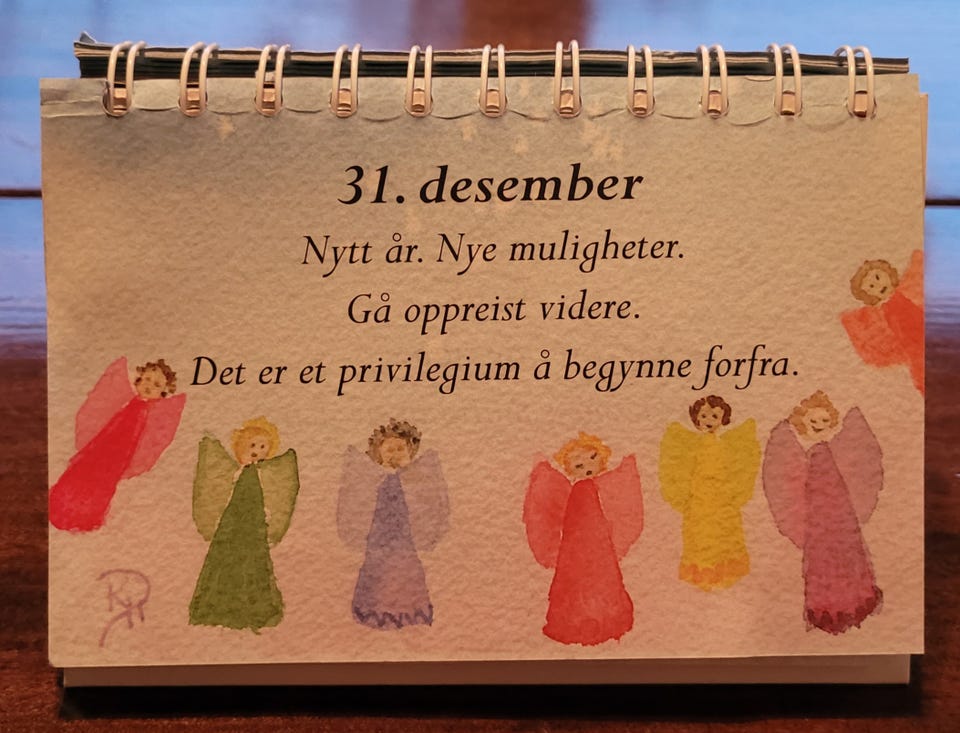 31. desember
Nytt år. Nye muligheter.
Gå oppreist videre.
Det er et privilegium å begynne forfra.